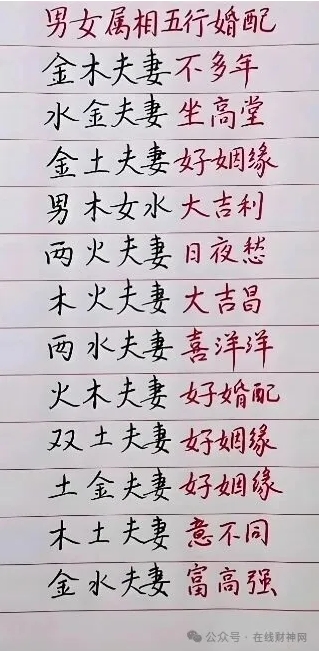 男女属相五行婚配
金木夫妻不多年
水金夫妻坐高堂
金土夫妻好姻缘
男木女水大吉利
两火夫妻日夜愁
木火夫妻大吉昌
两水夫妻喜洋洋
火木夫妻好婚配
双土夫妻好姻缘
土金夫妻好姻缘
木土夫妻意不同
金水夫妻富高强
公众号·在线财神网